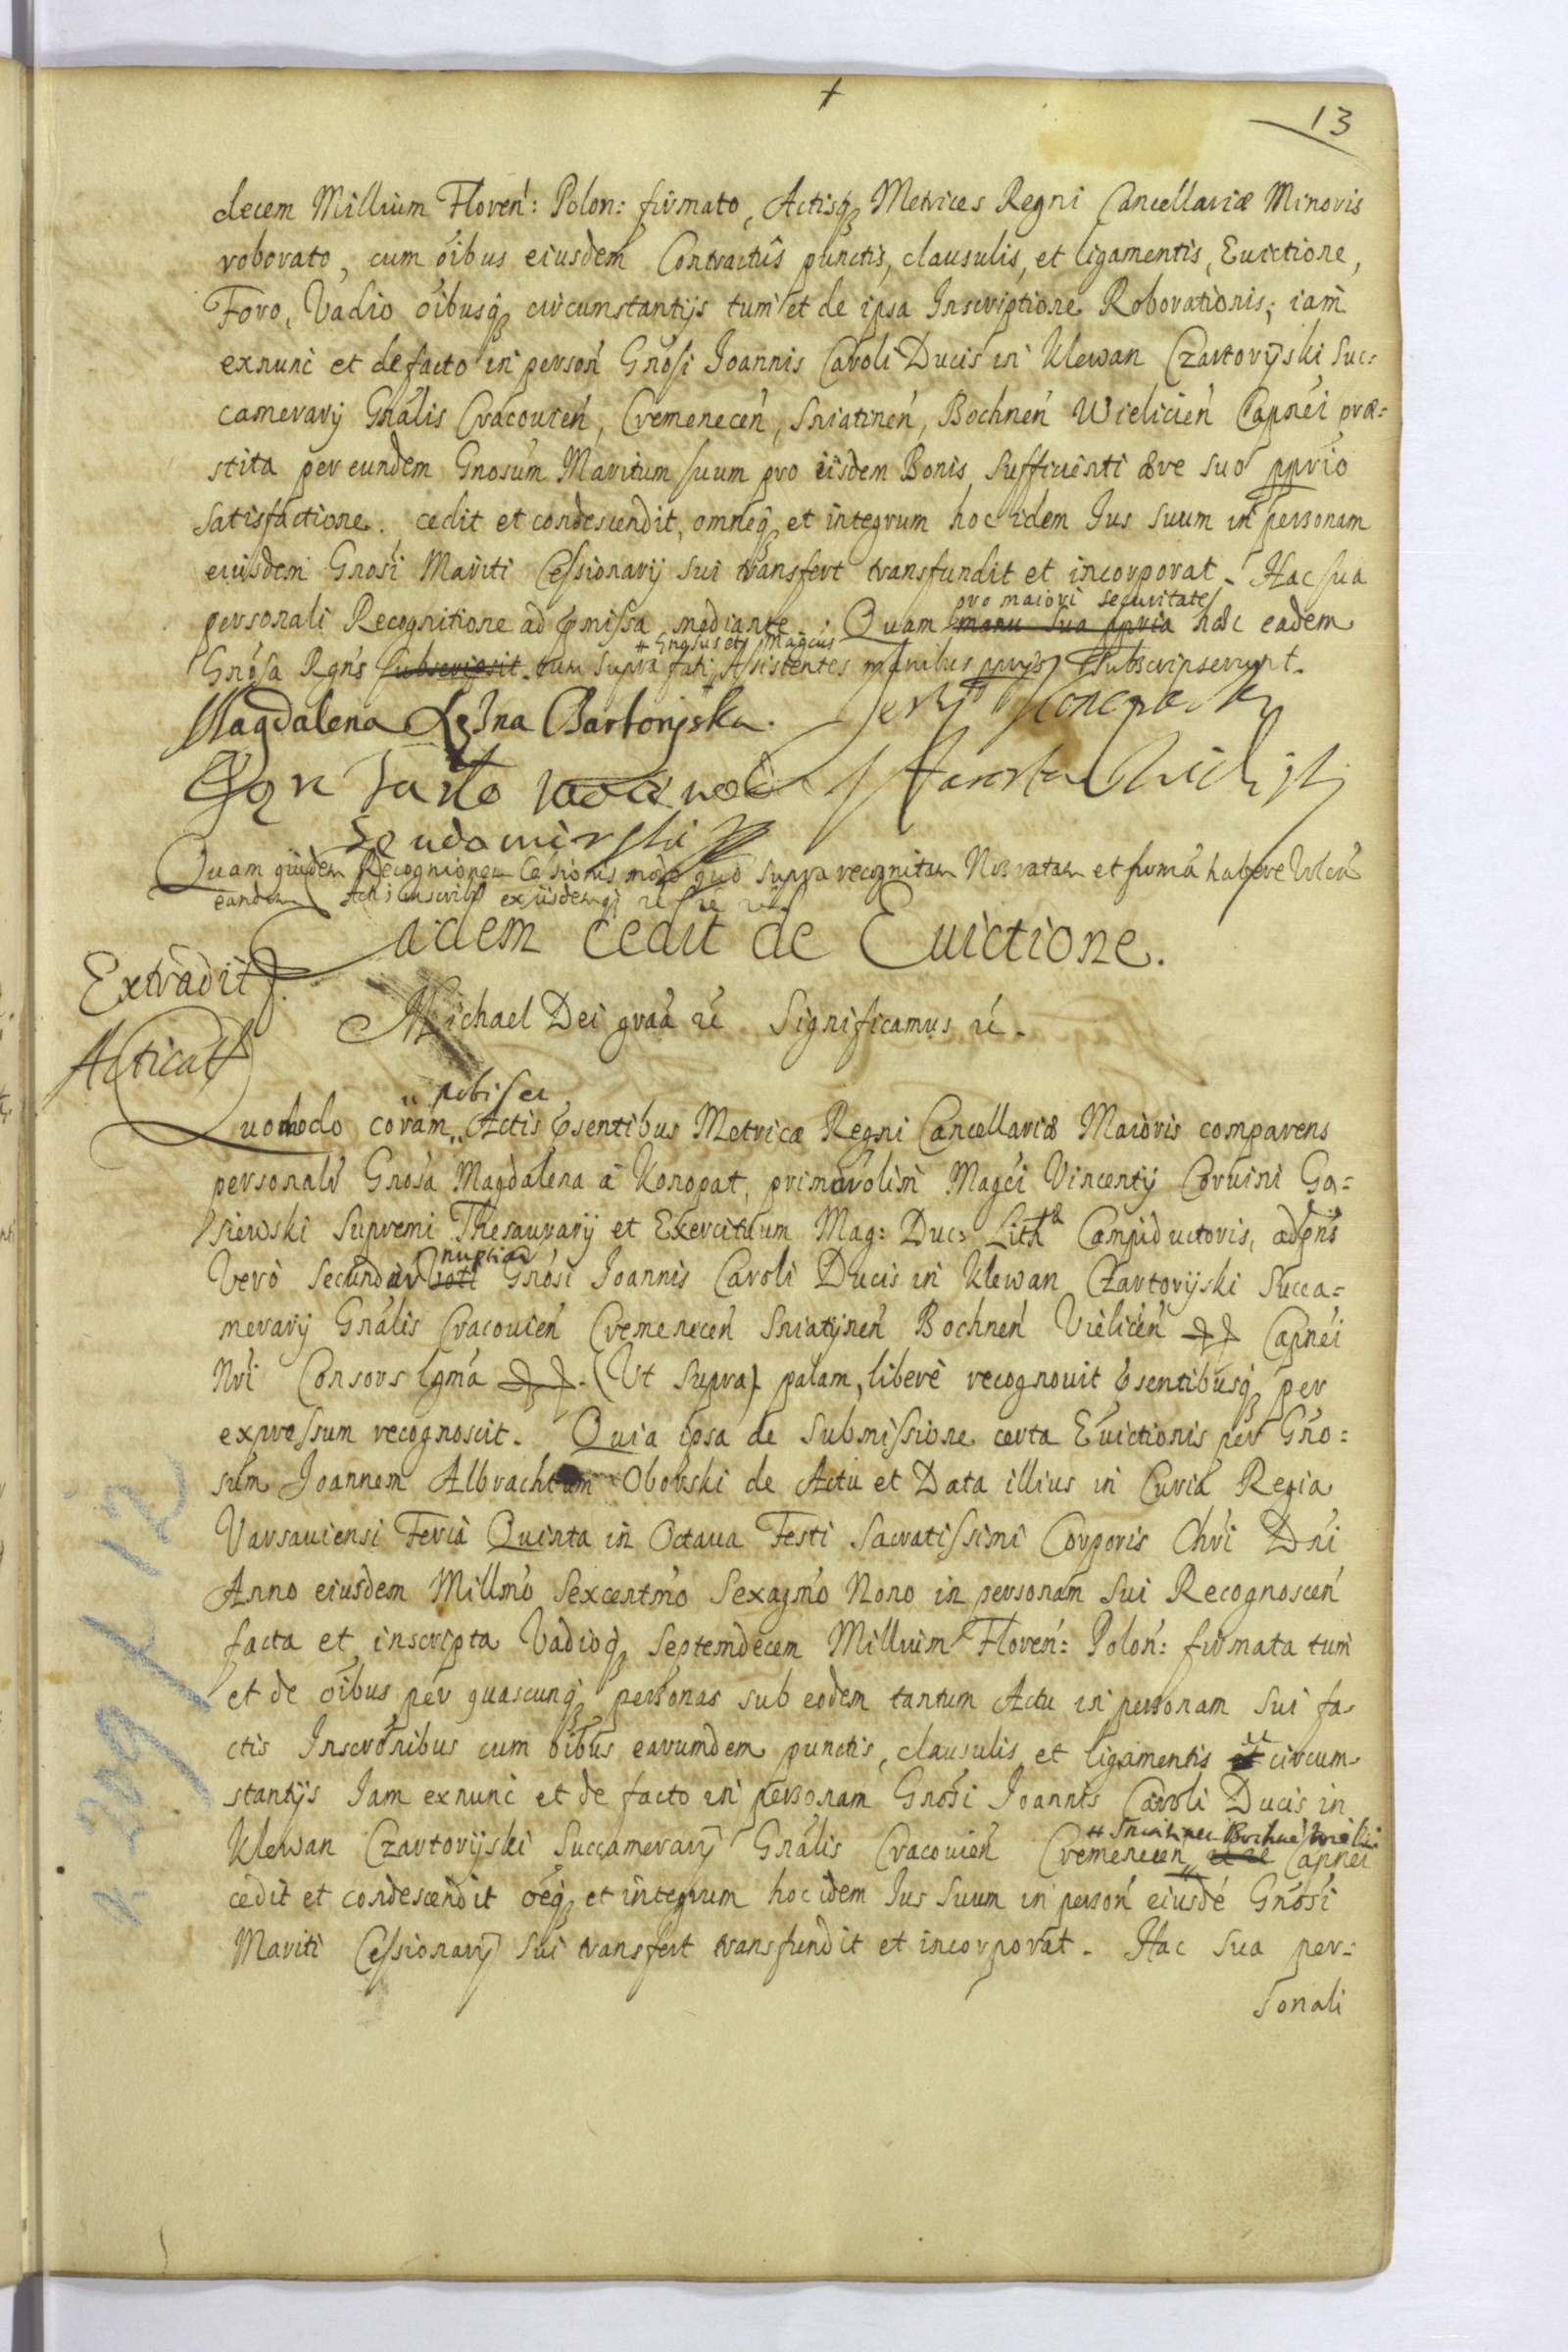 +
13
decem Millium Floreń: Polon: firmato, Actisq3 Metrices Regni Cancellariæ Minoris
roborato, cum oibus eiusdem Contractûs punctis, clausulis, et ligamentis, Euictione,
Foro, Vadio oibusq3 circumstantijs tum et de ipsa Inscriptione Roborationis; iam
exnunc et defacto in person Gnosi Joannis Caroli Ducis in Klewan Czartoryski Suc=
camerarij Gnalis Cracouień, Cremeneceń, Sniatineń, Bochneń Wielicień Capnei præ=
stita per eundem Gnosum Maritum suum pro iisdem Bonis, sufficienti ære suo pprio
satisfactione. cedit et condescendit, omneq3 et integrum hoc idem Jus suum in personam
eiusdem Gnosi Mariti Cessionarij sui transfert transfundit et incorporat. Hac sua
pro maiori securitate
personali Recognitione ad præmissa mediante. Quam manu sua ppria hæc eadem
+ Gnosus et Magcus
Gnosa Rgns subscripsit. tum supra fati Assistentes manibus pprijs subscripserunt.
Magdalena Czartoryska.
Sendomirski
Quam quidem Recognionem Cessionis modo quo supra recognitam Nos ratam et firma habere volen
eandem Actis inscribi ex iisdemq3
Eadem cedit de Euictione.
Extradit
Michael Dei graa &c Significamus &c.
Acticat
nobis et
Quomodo coram Actis præsentibus Metricæ Regni Cancellariæ Maioris comparens
personalr Gnosa Magdalena a Konopat, primar olim Magci Vincentij Coruini Go=
siewski Supremi Thesaurarij et Exercituum Mag: Duc: Lith Campiductoris, ad pns
nuptiar
Vero secundar voti Gnosi Joannis Caroli Ducis in Klewan Czartoryski Succa=
merarij Gnalis Cracouień Cremeneceń Sniatyneń Bochneń Vielicień Capnei
Nri Consors lgma (Ut supra) palam, libere recognouit præsentibusq3 per
expressum recognoscit. Quia ipsa de submissione certa Euictionis per Gno=
sum Joannem Albrachtum Oborski de Actu et Data illius in Curia Regia
Varsauiensi Feria Quinta in Octaua Festi Sacratissimi Corporis Chri Dni
Anno eiusdem Millmo Sexcentmo Sexagmo Nono in personam sui Recognosceń
facta et inscripta Vadioq3 septemdecem Millium Floreń: Poloń: firmata tum
et de oibus per quascunq3 personas sub eodem tantum Actu in personam sui fa-
ctis Inscronibus cum oibus earumdem punctis, clausulis et ligamentis et circum-
stantijs Jam exnunc et de facto in personam Gnosi Joannis Caroli Ducis in
Sniatinen Bochnen Wielici
Klewan Czartoryski Succamerarij Gnalis Cracouień Cremenecen et &c Capnei
cedit et condescendit oeq3 et integrum hoc idem Jus suum in person eiusde Gnosi
Mariti Cessionarij sui transfert transfundit et incorporat. Hac sua per=
sonali